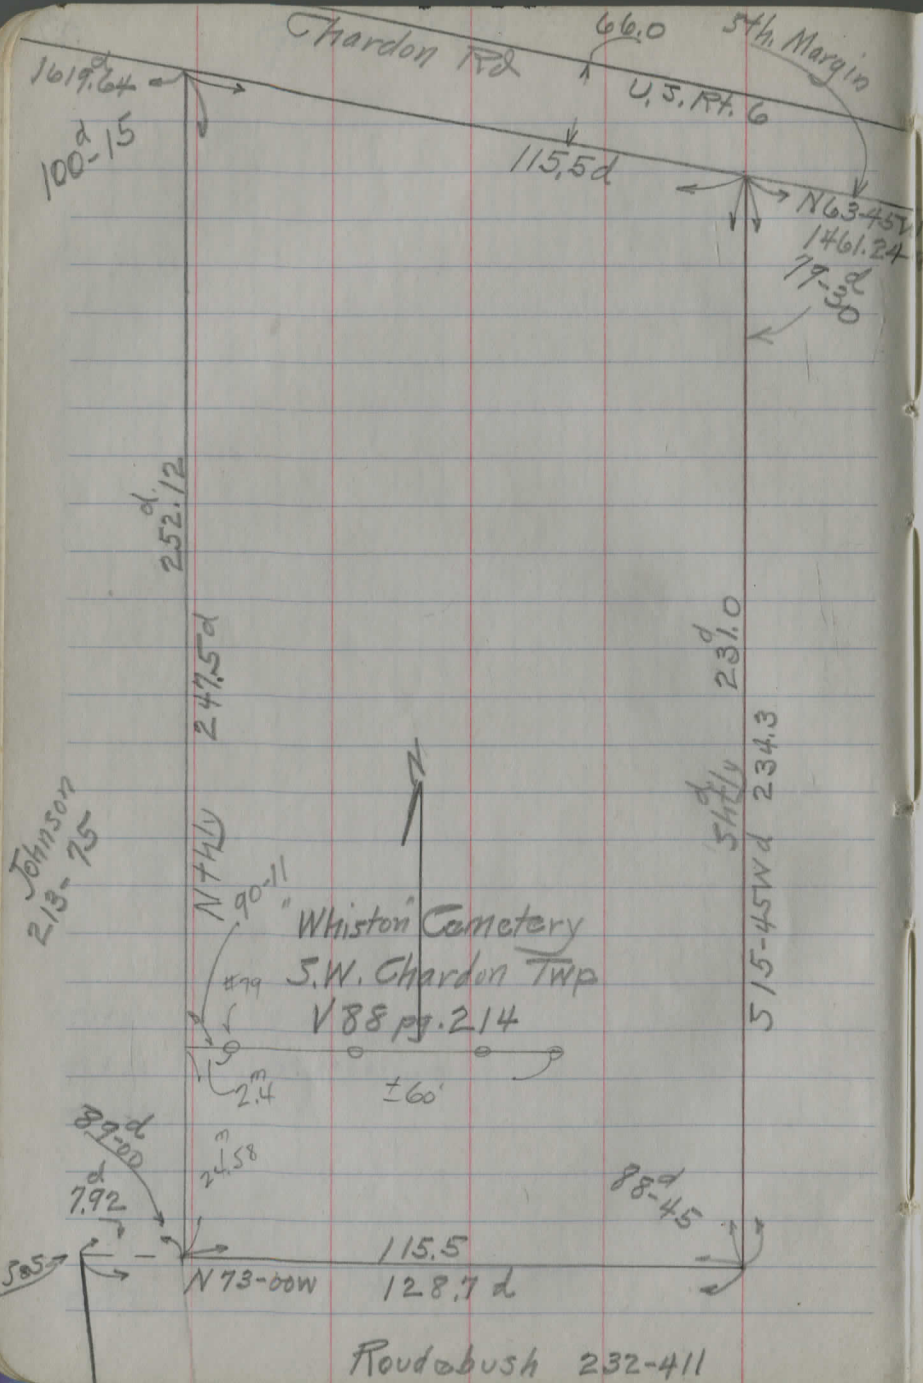 Chardon Rd
66.0
Sth. Margin
U.S. Rt. 6
1619.64 d
100-15 d
115.5d
N63-45W
1461.24
79-30 d
252.12 d
247.5d
231.0 d
Sthly d
S15-45W d 234.3
Johnson
213-75
Nthly
90-11
"Whiston" Cemetery
S.W. Chardon Twp
V88 pg. 214
#79
2.4 m
±60'
24.58 m
89-00 d
7.92 d
88-45 d
115.5
N73-00W
128.7 d
Roudebush 232-411